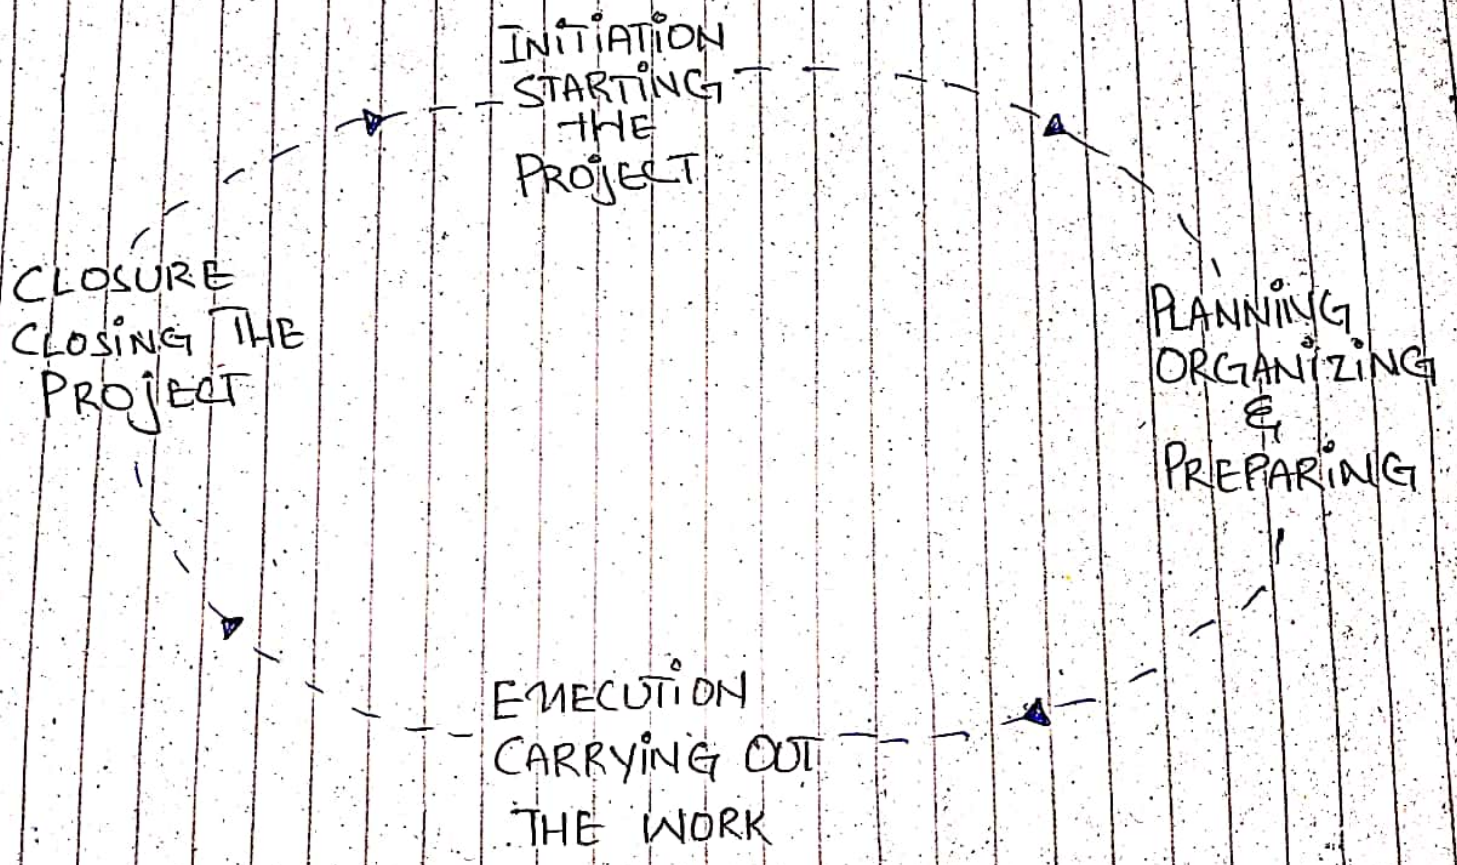 INITIATION
STARTING
THE
PROJECT
PLANNING
ORGANIZING
&
PREPARING
EXECUTION
CARRYING OUT
THE WORK
CLOSURE
CLOSING THE
PROJECT